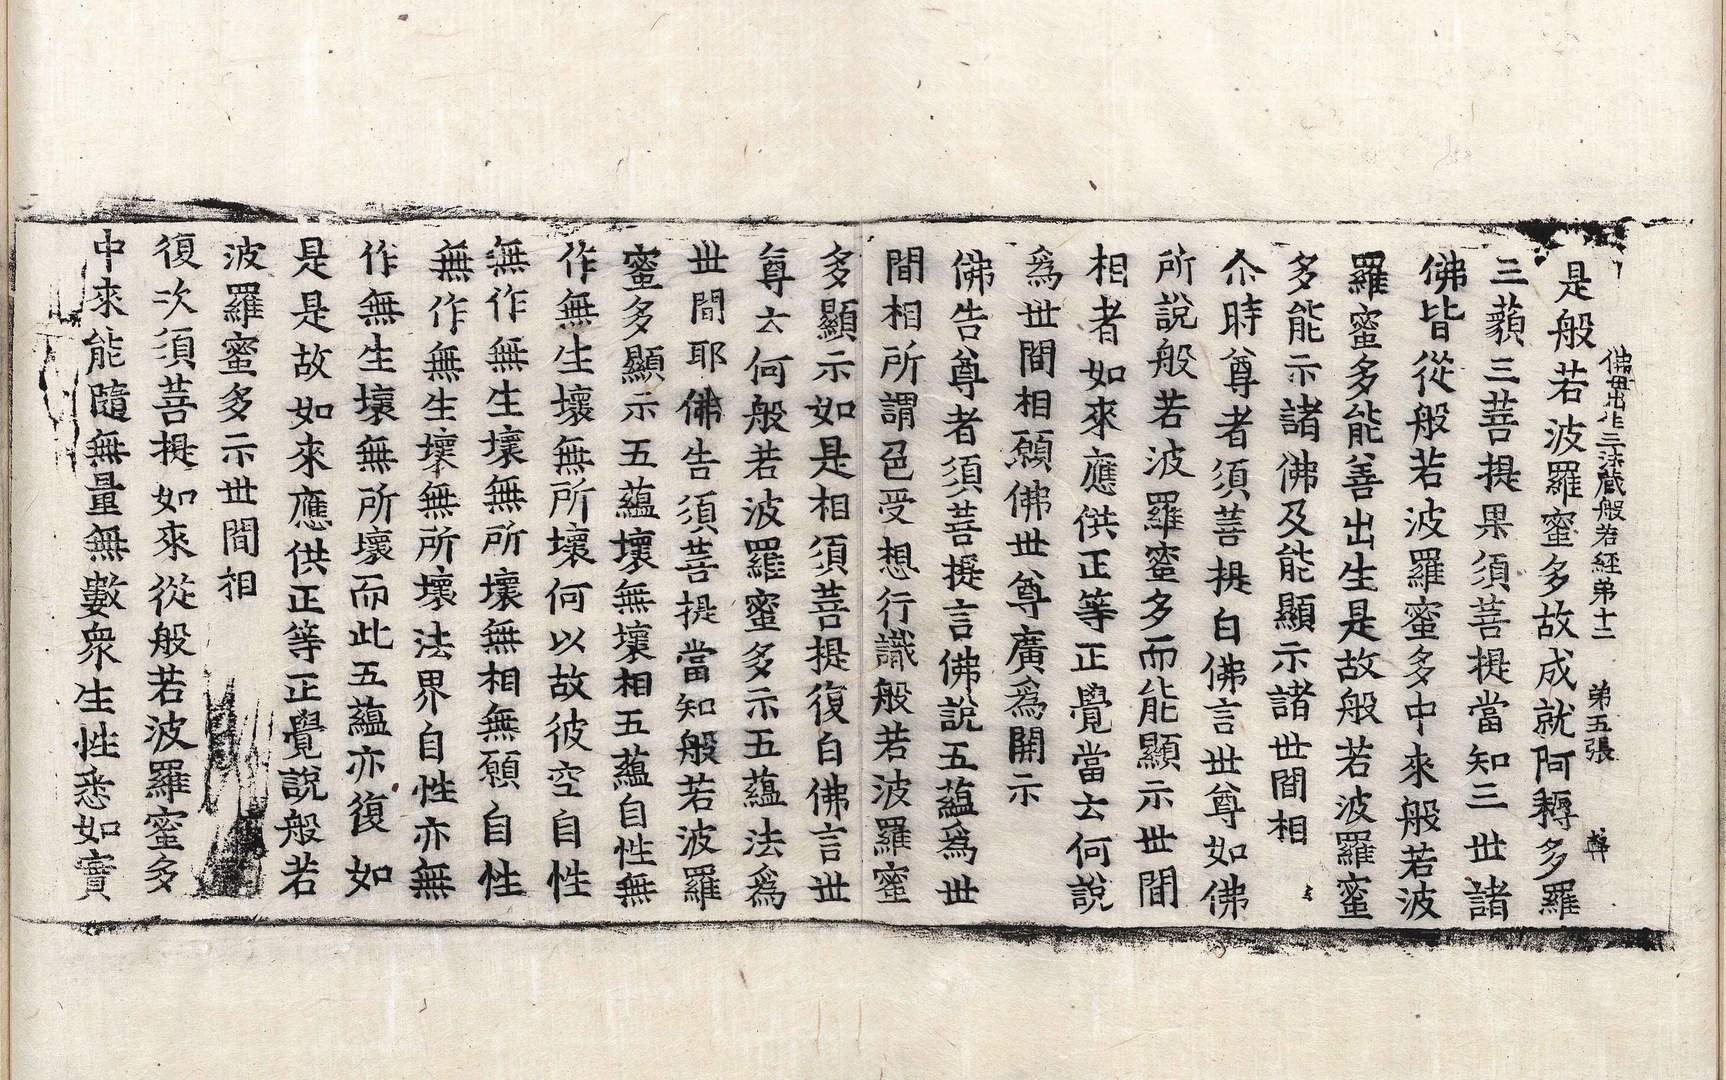 佛母出生三法藏般若經第十二 第五張
是般若波羅蜜多故成就阿耨多羅
三藐三菩提果須菩提當知三世諸
佛皆從般若波羅蜜多中來般若波
羅蜜多能善出生是故般若波羅蜜
多能示諸佛及能顯示諸世間相
尒時尊者須菩提白佛言世尊如佛
所說般若波羅蜜多而能顯示世間
相者如來應供正等正覺當云何說
爲世間相願佛世尊廣爲開示
佛告尊者須菩提言佛說五蘊爲世
間相所謂色受想行識般若波羅蜜
多顯示如是相須菩提復白佛言世
尊云何般若波羅蜜多示五蘊法爲
世間耶佛告須菩提當知般若波羅
蜜多顯示五蘊壞無壞相五蘊自性無
作無生壞無所壞何以故彼空自性
無作無生壞無所壞無相無願自性
無作無生壞無所壞法界自性亦無
作無生壞無所壞而此五蘊亦復如
是是故如來應供正等正覺說般若
波羅蜜多示世間相
復次須菩提如來從般若波羅蜜多
中來能隨無量無數衆生性悉如實